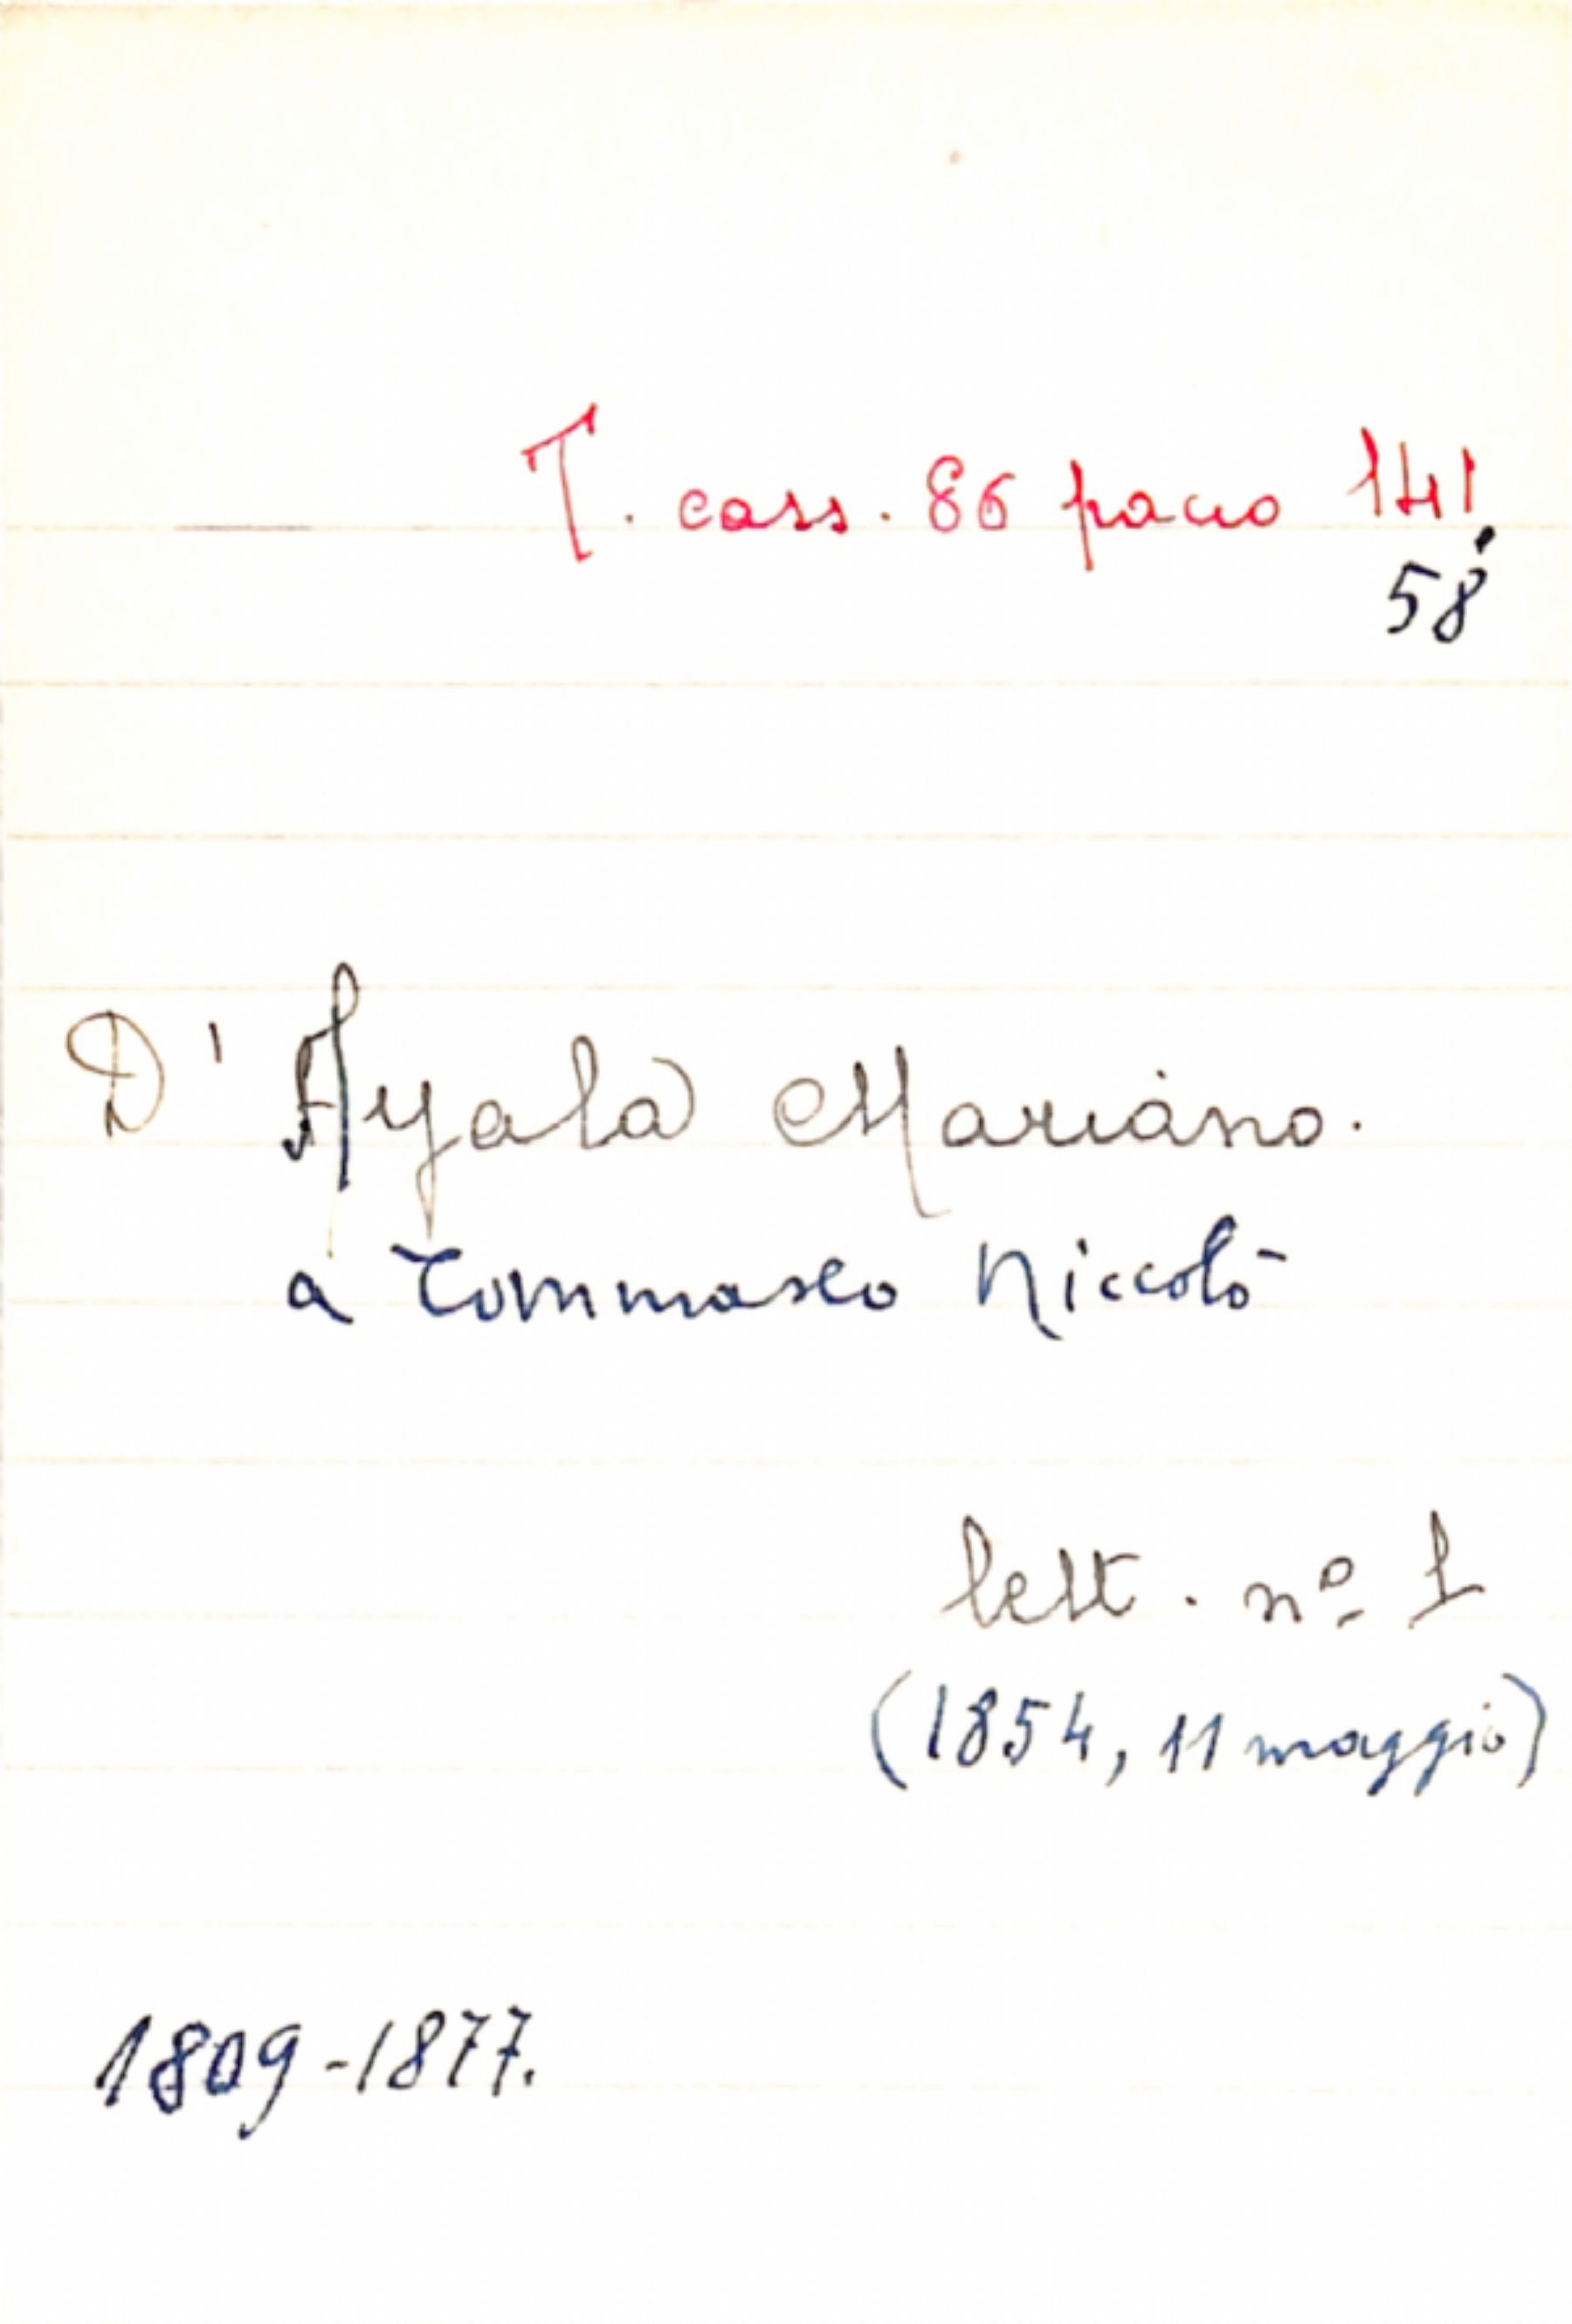 T. cass. 86 pacco 141.
58
D' Ayala Mariano.
a Tommaseo Niccolò
lett. nº 1
(1854, 11 maggio)
1809-1877.